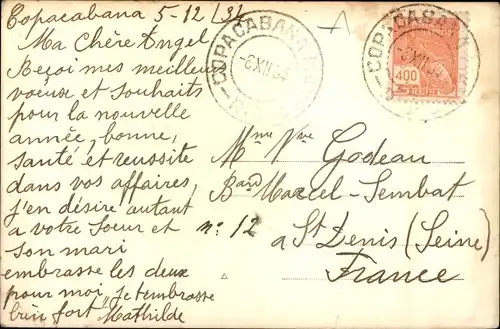 Copacabana 5-12/34
Ma Chère Angel
Reçoi mes meilleurs
voeux et souhaits
pour la nouvelle
année, bonne,
santé et reussite
dans vos affaires,
j'en désire autant
a votre Soeur et
son mari
embrasse les deux
pour moi, Je t'embrasse
bien fort Mathilde
COPACABANA
-6XII34
COPACABANA
-6XII34
400
BRASIL
Mme Vve Godeau
Bard Marcel-Sembat
n° 12
a St Denis (Seine)
France